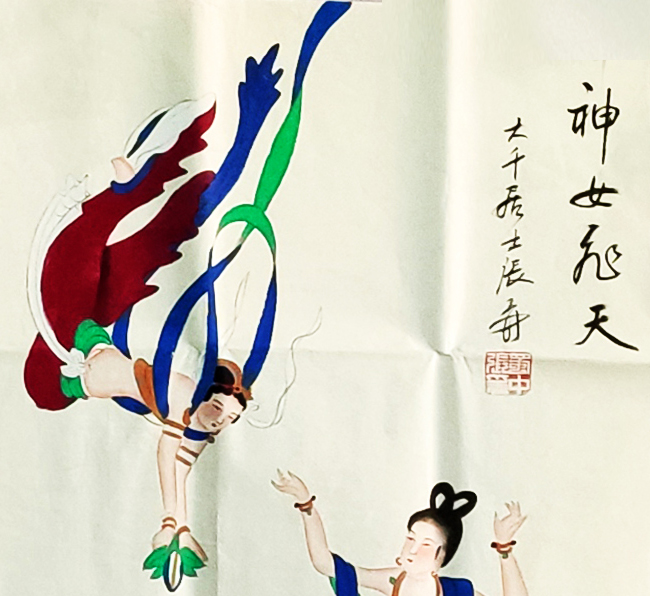 神女飛天
大千居士張爰